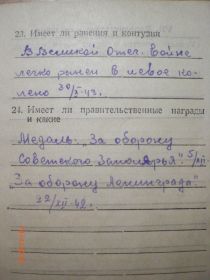 23. Имеет ли ранения и контузии
В Великой Отеч. Войне
легко ранен в левое ко-
лено 30/X-43.
24. Имеет ли правительственные награды
и какие
Медаль. "За оборону
Советского Заполярья". 5/XII
"За оборону Ленинграда".
22/XII-42.